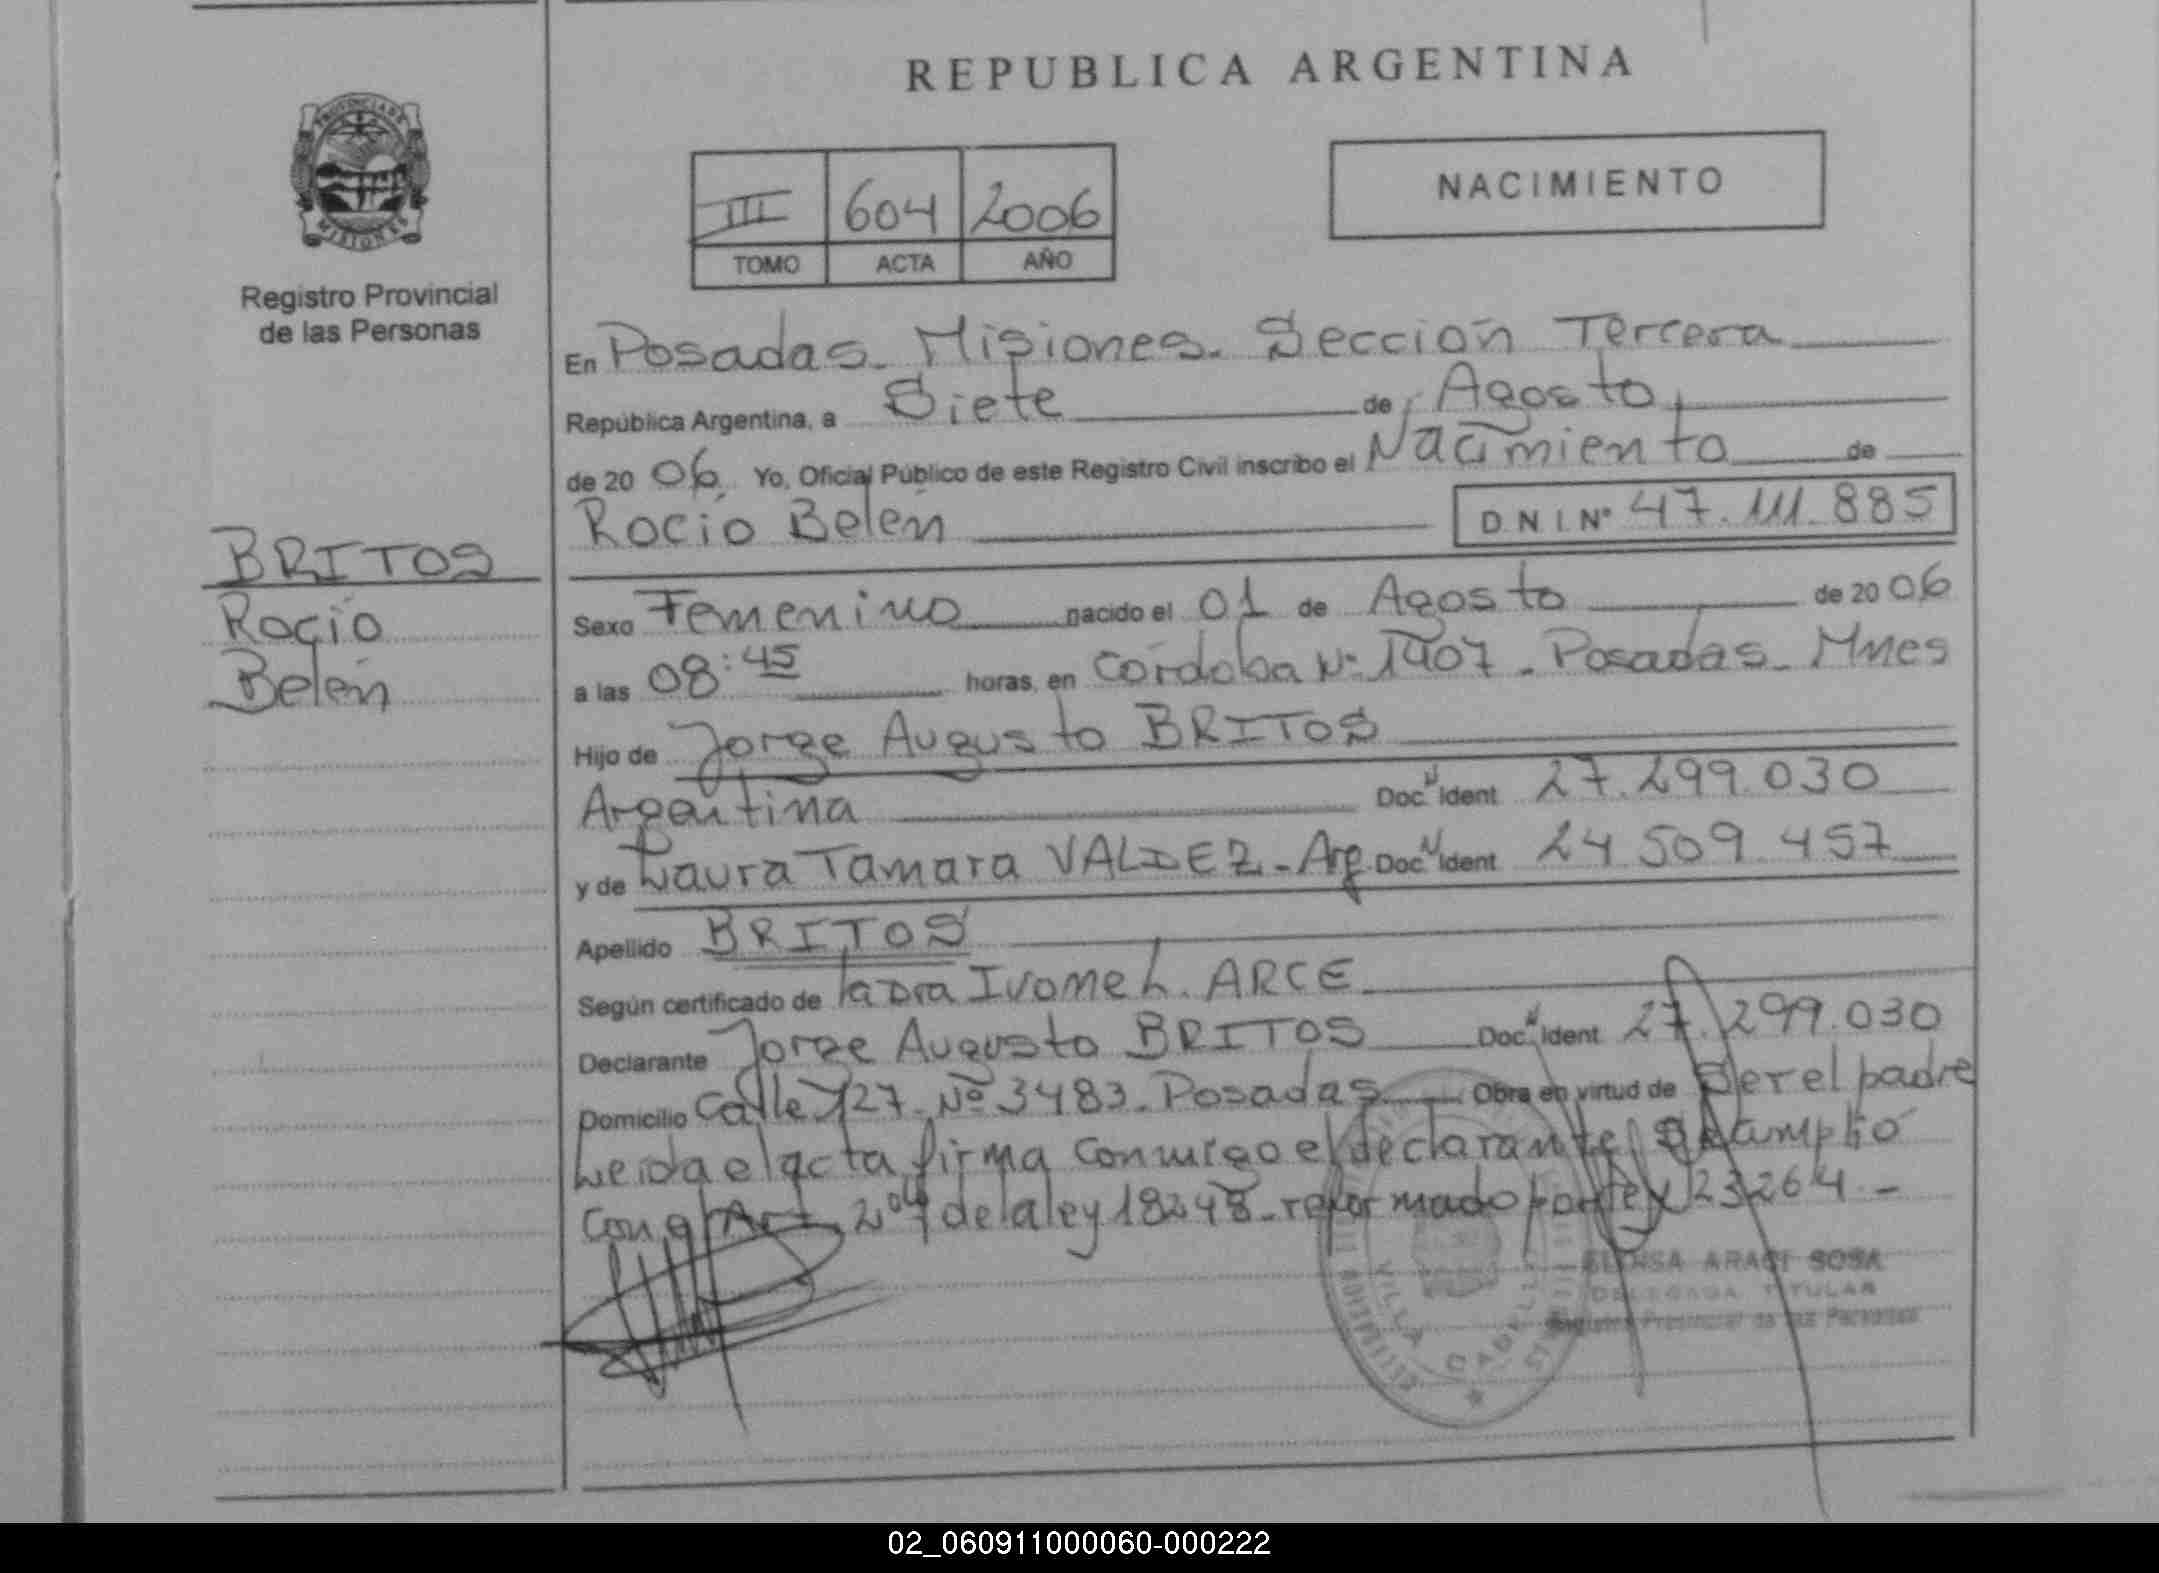 REPUBLICA ARGENTINA
PROVINCIA DE
MISIONES
Registro Provincial
de las Personas
III 604 2006
TOMO ACTA AÑO
NACIMIENTO
En Posadas. Misiones. Sección Tercera
República Argentina, a Siete de Agosto
de 20 06. Yo, Oficial Público de este Registro Civil inscribo el Nacimiento de
Rocío Belén D N I Nº 47.111.885
BRITOS
Rocío
Belén
Sexo Femenino nacido el 01 de Agosto de 20 06
a las 08:45 horas, en Córdoba Nº 1407 - Posadas - Mnes
Hijo de Jorge Augusto BRITOS
Argentina Doc. Ident 27.299.030
y de Laura Tamara VALDEZ - Arg. Doc. Ident 24 509 457
Apellido BRITOS
Según certificado de la Dra Ivonne L. ARCE
Declarante Jorge Augusto BRITOS Doc. Ident 27.299.030
Domicilio Calle 127 - Nº 3483 - Posadas Obra en virtud de Ser el padre
Leida el acta firma conmigo el declarante Se cumplió
con el Art 2º de la ley 18248 - reformado por ley 23264 -
ARACI SOSA
DELEGADA TITULAR
Registro Provincial de las Personas
VILLA CABELLO
02_060911000060-000222